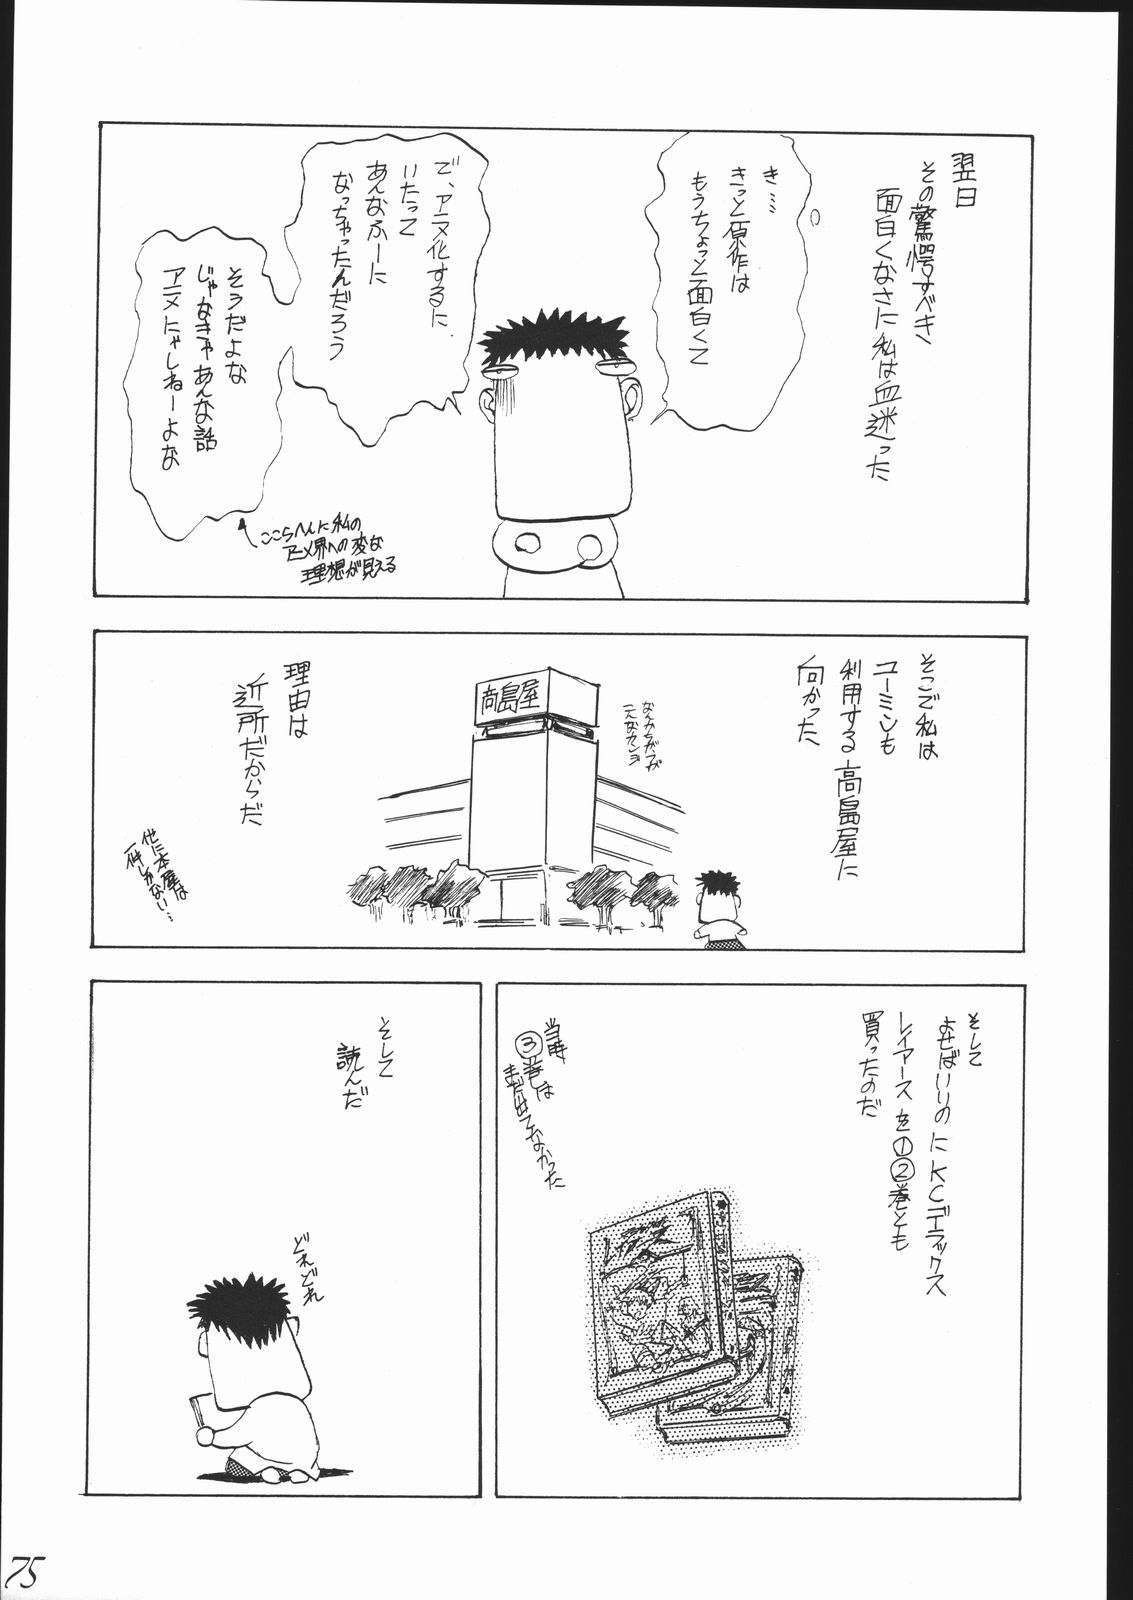 翌日
その驚愕すべき
面白くなさに私は血迷った
き…
きっと原作は
もうちょっと面白くて
で、アニメ化するに
いたって
あんなふーに
なっちゃったんだろう
そうだよな
じゃなきゃあんな話
アニメにゃしねーよな
ここらへんに私の
アニメ界への変な
理想が見える
そこで私は
ユーミンも
利用する高島屋に
向かった
高島屋
なんかちがうが
こんなカンジ
理由は
近所だからだ
他に本屋は
一件しかない…
そして
よせばいいのにKCデラックス
レイアースを①②巻とも
買ったのだ
当時
③巻は
まだ出てなかった
レイアース
そして
読んだ
どれどれ
75